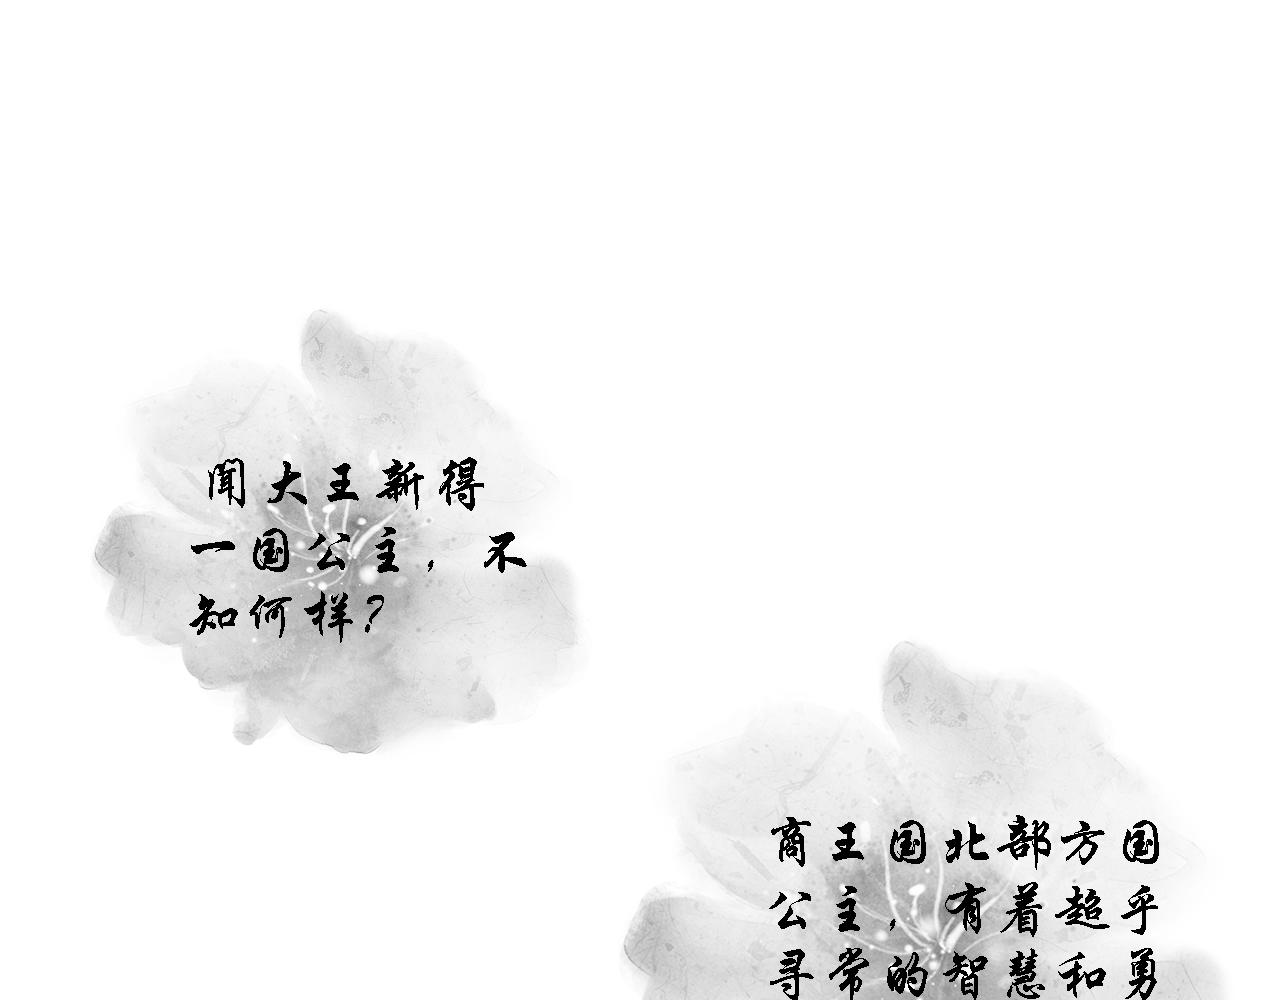 闻大王新得
一国公主，不
知何样？
商王国北部方国
公主，有着超乎
寻常的智慧和勇